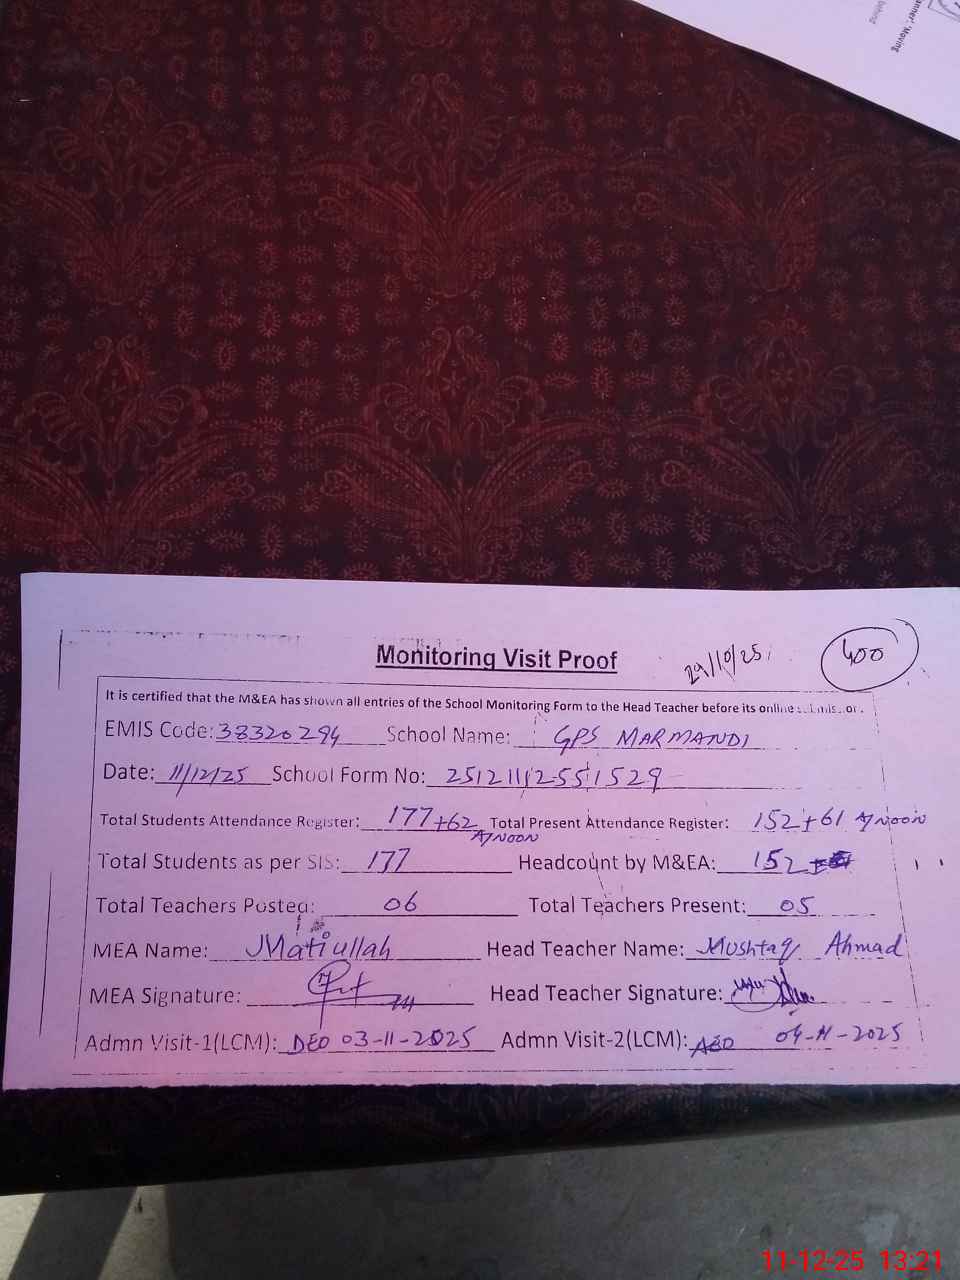 anner, 'Moving
behind
Monitoring Visit Proof
29/10/25
400
It is certified that the M&EA has shown all entries of the School Monitoring Form to the Head Teacher before its online submission.
EMIS Code: 38320294 School Name: GPS MARMANDI
Date: 11/12/25 School Form No: 25121112551529
Total Students Attendance Register: 177+62 A/NOON Total Present Attendance Register: 152+61 A/NOON
Total Students as per SIS: 177 Headcount by M&EA: 152
Total Teachers Posted: 06 Total Teachers Present: 05
MEA Name: Matiullah Head Teacher Name: Mushtaq Ahmad
MEA Signature: Head Teacher Signature:
Admn Visit-1(LCM): DEO 03-11-2025 Admn Visit-2(LCM): AEO 04-11-2025
11-12-25 13:21